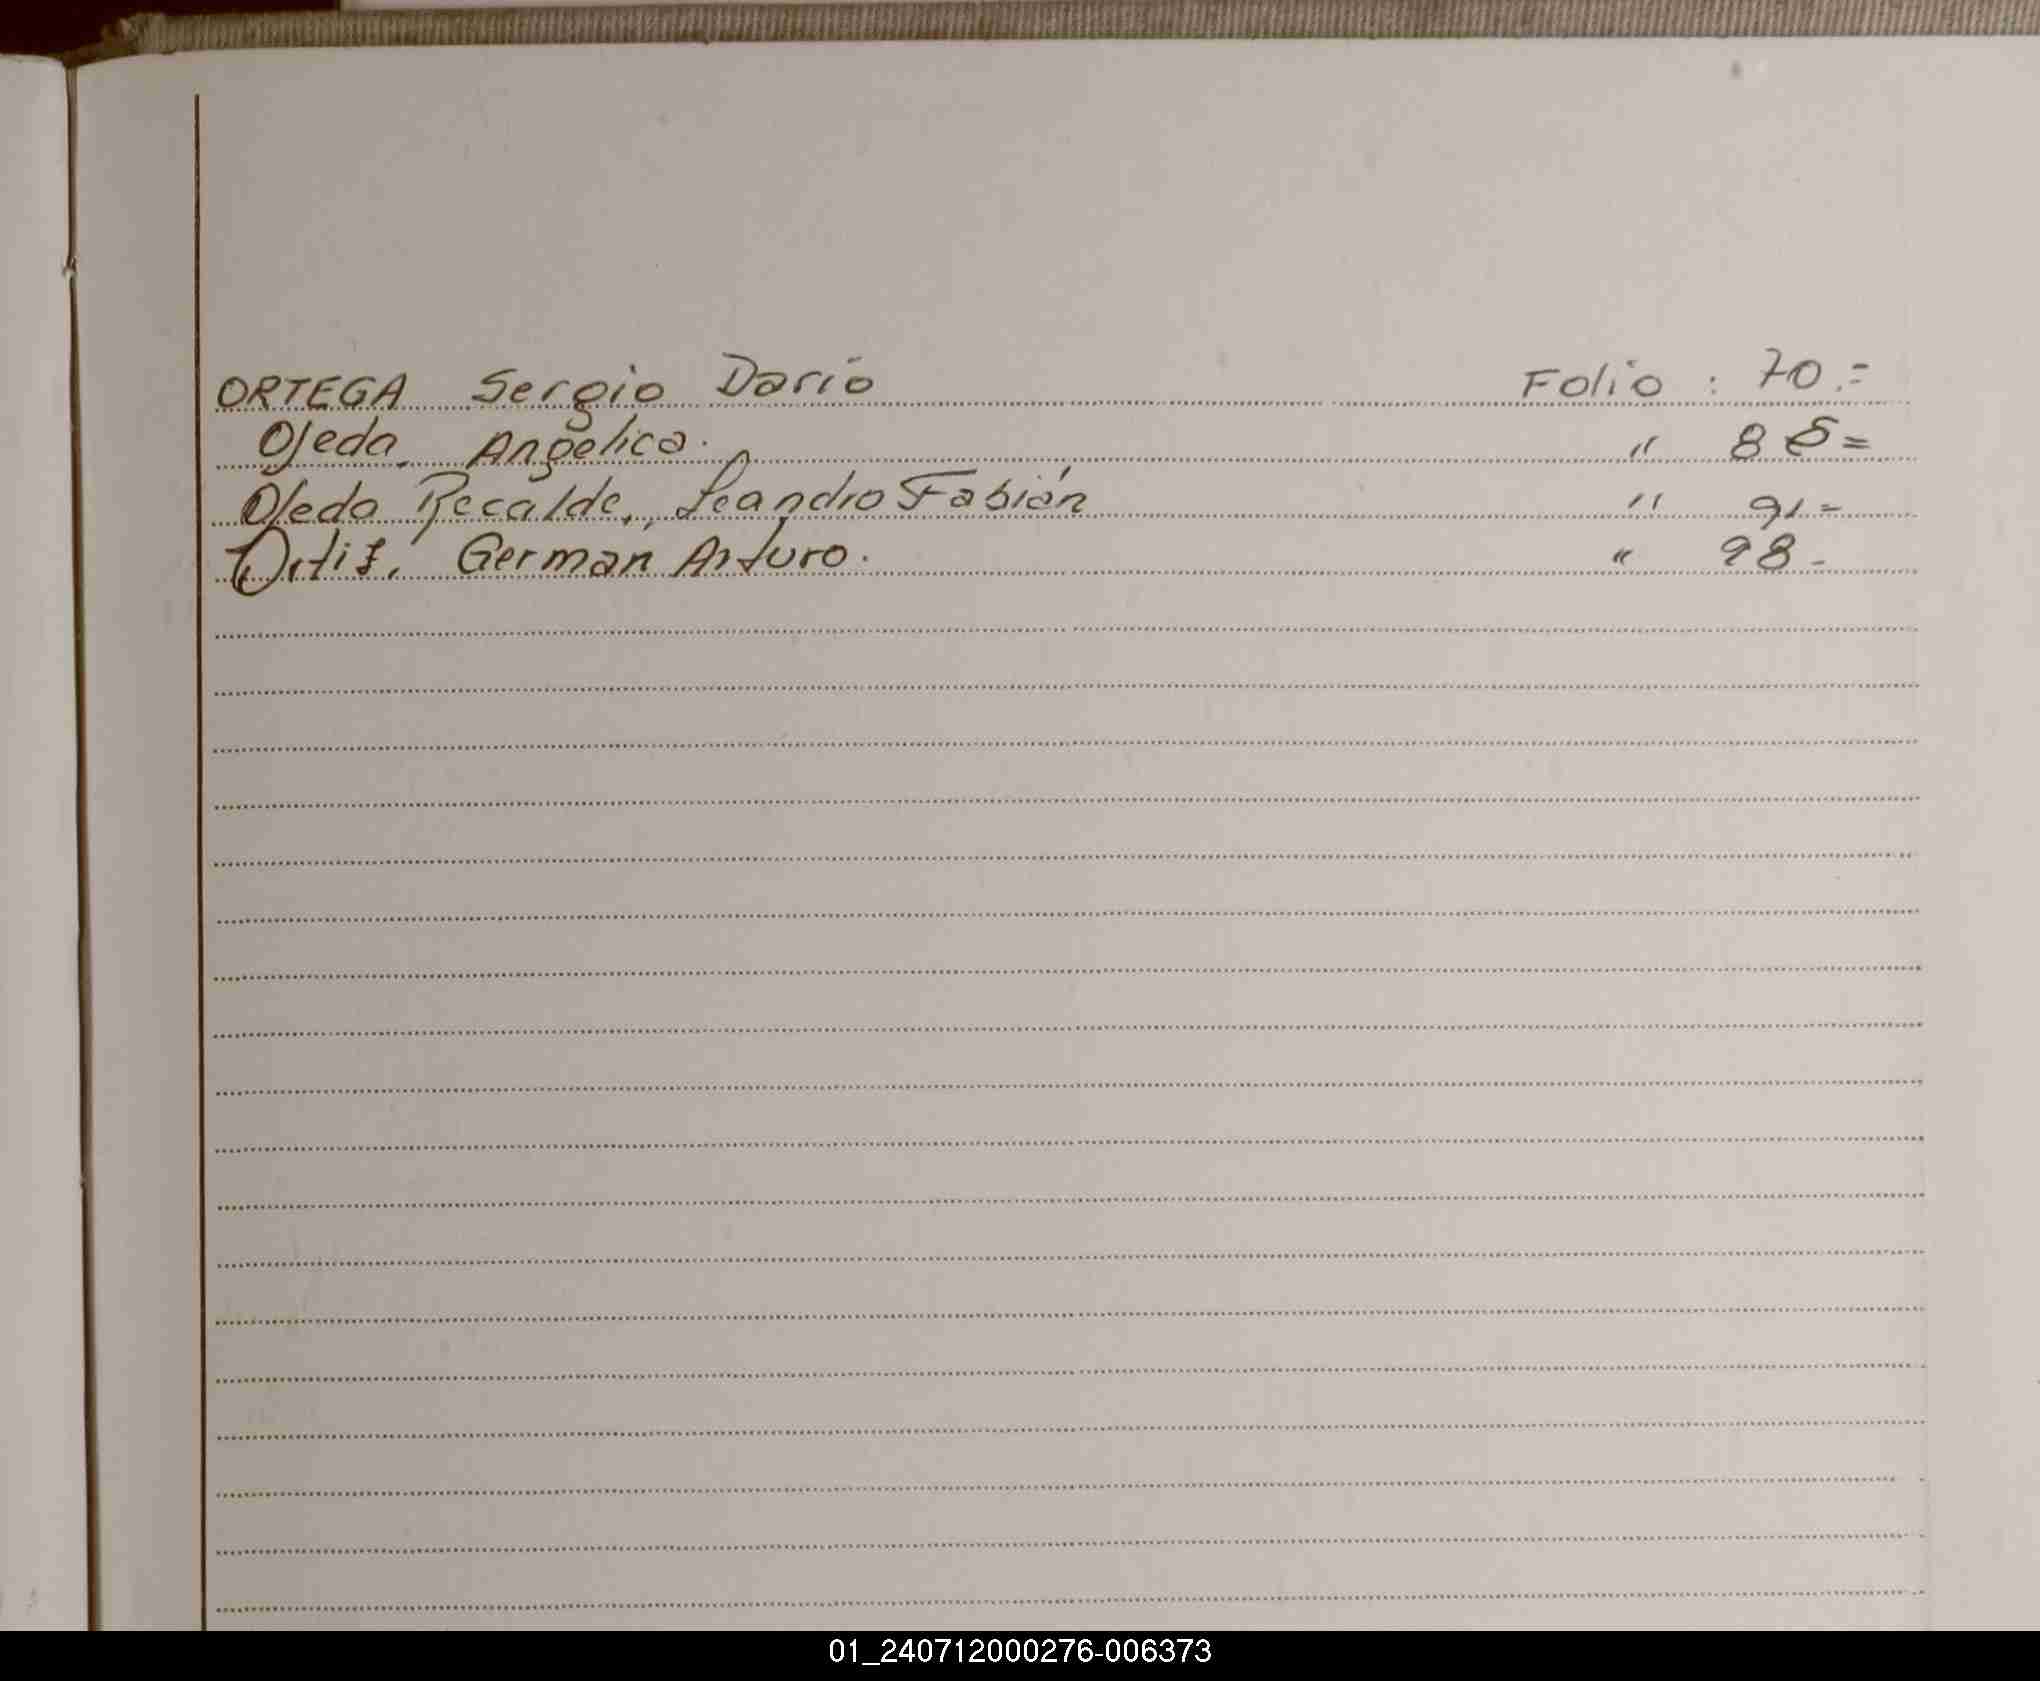 ORTEGA Sergio Dario Folio : 70.=
Ojeda, Angelica. " 85=
Ojeda Recalde, Leandro Fabián " 91=
Ortiz, German Arturo. " 98-
01_240712000276-006373